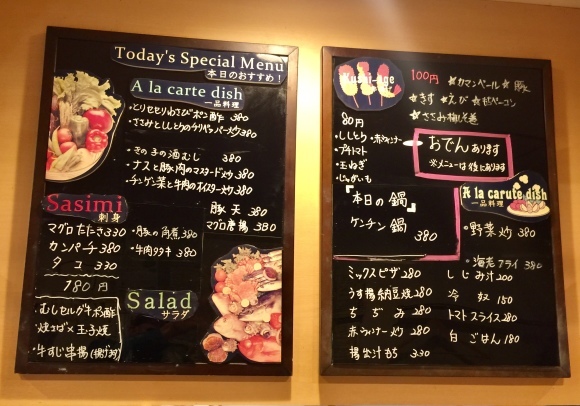 Today's Special Menu
本日のおすすめ!
A la carte dish
一品料理
・とりセセリわさびポン酢 380
・ささみとししとうのチリペッパー炒380
・きの子の酒むし 380
・ナスと豚肉のマスタード炒 380
・チンゲン菜と牛肉のオイスター炒 380
豚天 380
マグロ唐揚 380
Sasimi
刺身
マグロたたき330
カンパーチ380
タコ 330
・豚の角煮 380
・牛肉タタキ 380
180円
・むしセルガキポン酢
・焼そば×玉子焼
・牛すじ串揚(揚げ3才)
Salad
サラダ
Kushi-age
100円
☆カマンベール☆豚
☆きす☆えび☆
ベーコン
☆ささみ梅しそ巻
80円
・ししとう・赤ウィンナー
・プチトマト
・玉ねぎ
・じゃがいも
おでんあります
※メニューは後にあります
『本日の鍋』
ケンチン鍋
380
A la carute dish
一品料理
・野菜炒 380
・海老フライ 380
ミックスピザ 280
うす揚納豆焼 280
ちぢみ 280
赤ウィンナー炒 280
揚出汁もち 330
しじみ汁 200
冷奴 150
トマトスライス 280
白ごはん 180